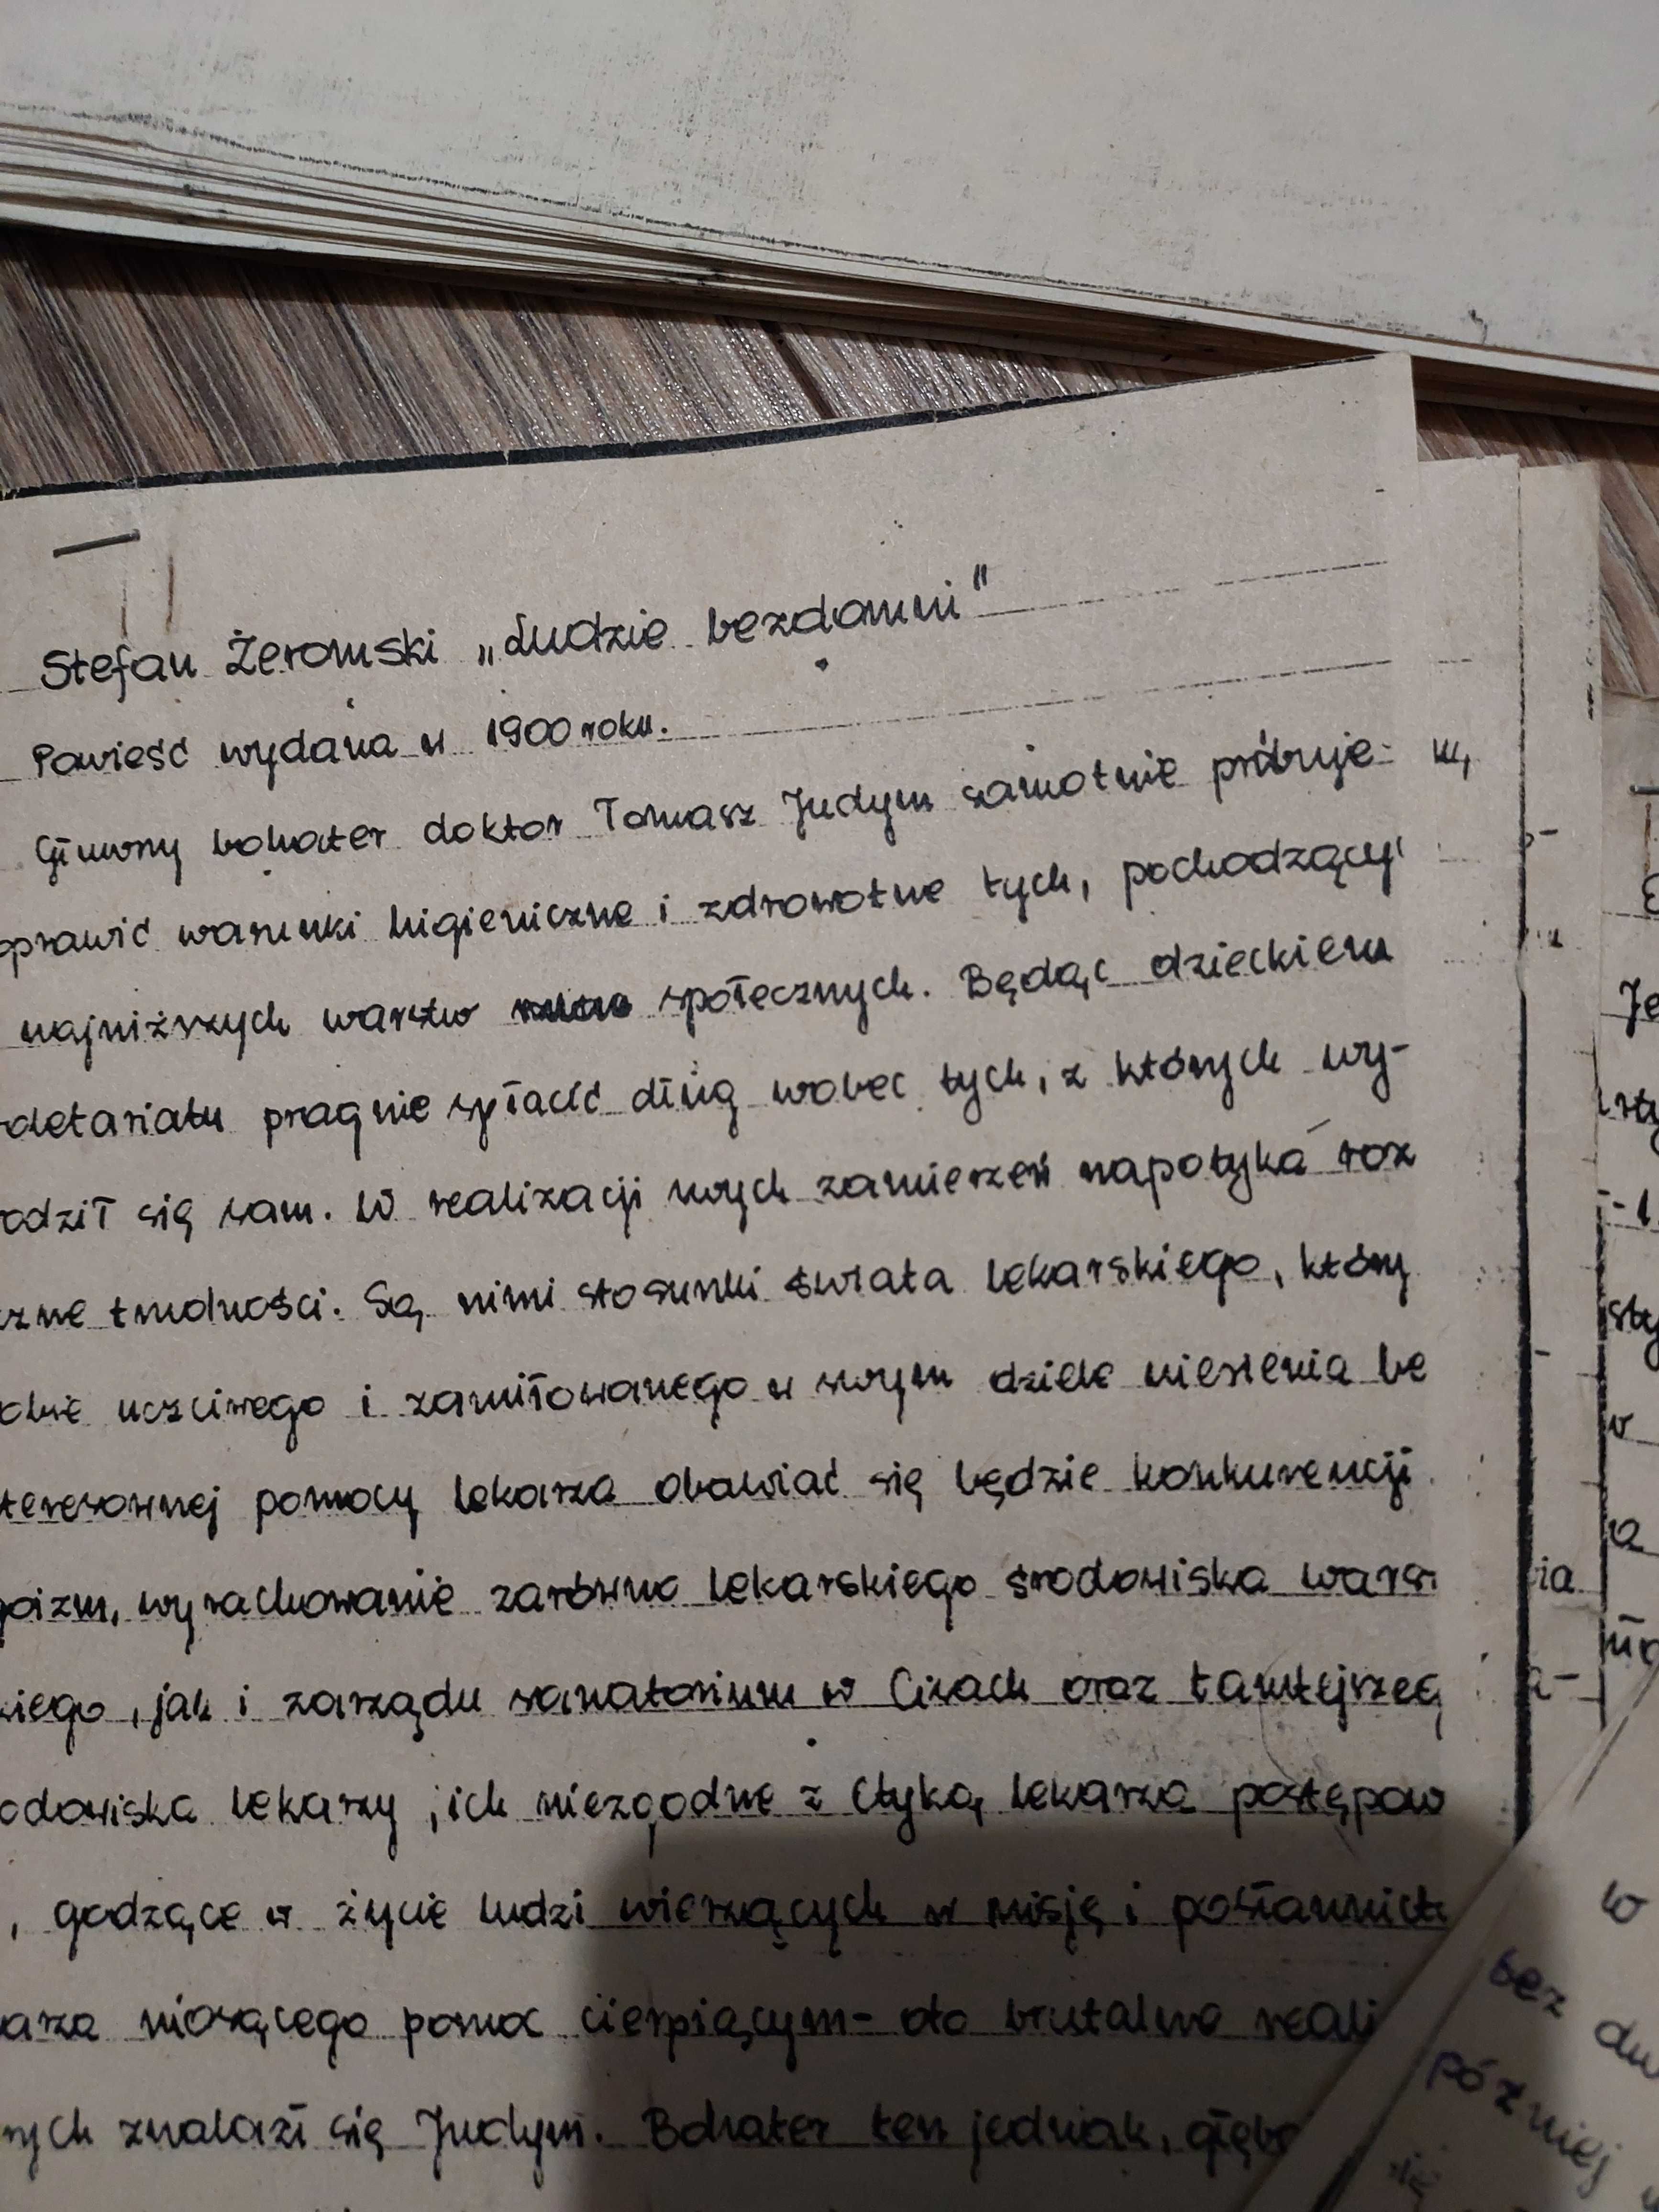 Stefan Żeromski „Ludzie bezdomni"
Powieść wydana w 1900 roku.
Główny bohater doktor Tomasz Judym samotnie próbuje
oprawić warunki higieniczne i zdrowotne tych, pochodzący
najniższych warstw społecznych. Będąc dzieckiem
oletariatu pragnie spłacić dług wobec tych, z których wy-
odził się sam. W realizacji swych zamierzeń napotyka roz
zne trudności. Są nimi stosunki świata lekarskiego, który
obie uczciwego i zamiłowanego w swym dziele niesienia be
teresownej pomocy lekarza obawiać się będzie konkurencji
goizm, wyrachowanie zarówno lekarskiego środowiska warsz
kiego, jak i zarządu sanatorium w Cisach oraz tamtejszeg
odowiska lekarzy, ich niezgodne z etyką lekarza postępow
, godzące w życie ludzi wierzących w misję i posłannict
arza niosącego pomoc cierpiącym- oto brutalne reali
nych znalazł się Judym. Bohater ten jednak, głębo
w
bez
później